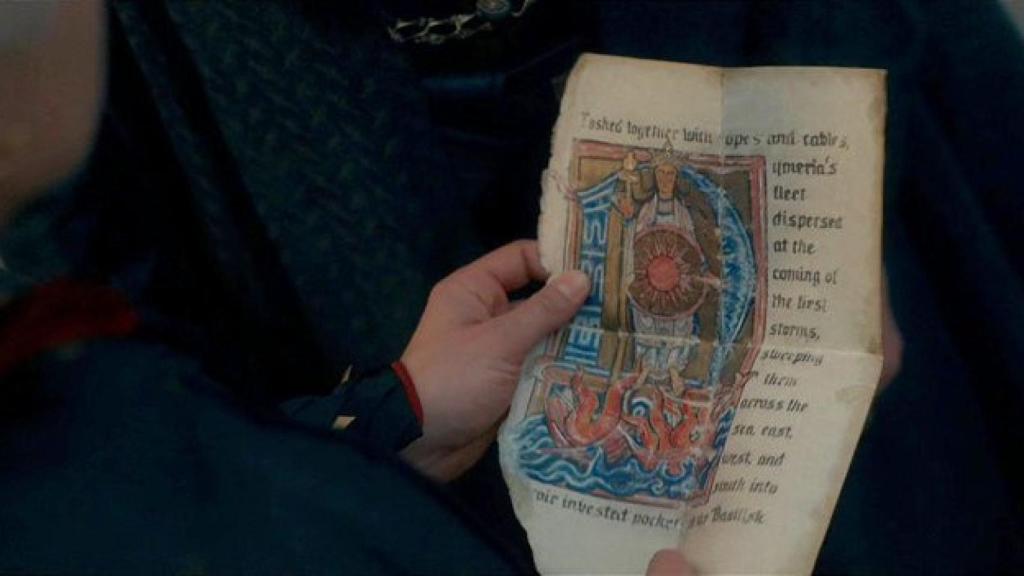 together with opes and cables,
ymeria's
fleet
dispersed
at the
coming of
the first
storms,
sweeping
them
across the
sea east,
west, and
south into
invested Basilisk